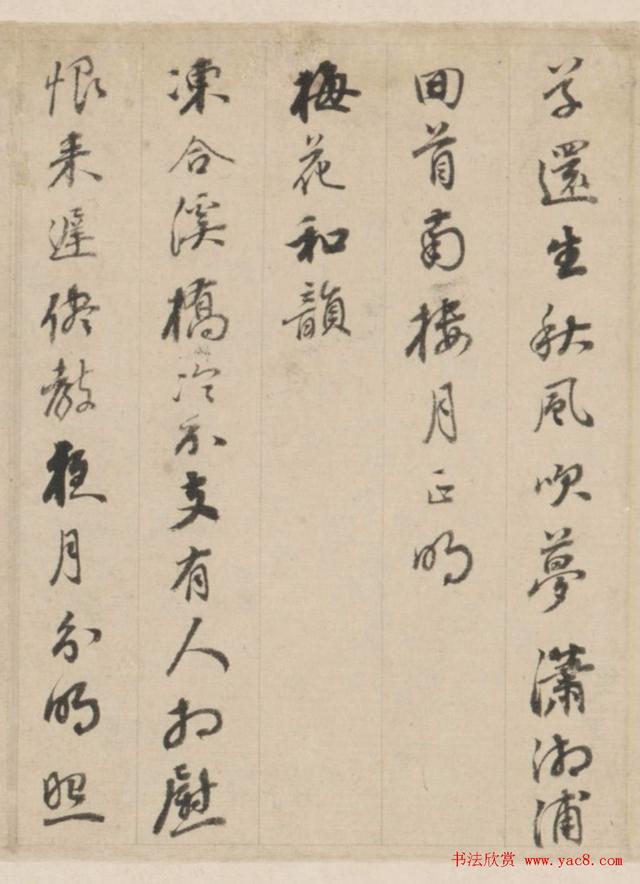 草還生秋風吹夢瀟湘浦
回首南樓月正明
梅花和韻
凍合溪橋冷不支有人相慰
恨来遲教月分明照
书法欣赏 www.yac8.com